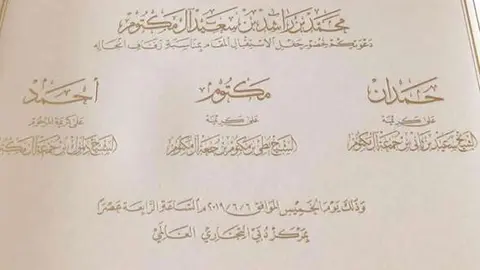 محمد بن راشد بن سعيد آل مكتوم
دعوتكم لحضور حفل الاستقبال المقام بمناسبة زفاف أنجاله
حمدان
على كريمة
الشيخ سعيد بن ثاني بن جمعة آل مكتوم
مكتوم
على كريمة
الشيخ بطي بن مكتوم بن جمعة آل مكتوم
أحمد
على كريمة المرحوم
الشيخ دلموك بن جمعة آل مكتوم
وذلك يوم الخميس الموافق ٢٠١٩/٦/٦م الساعة الرابعة عصراً
بمركز دبي التجاري العالمي